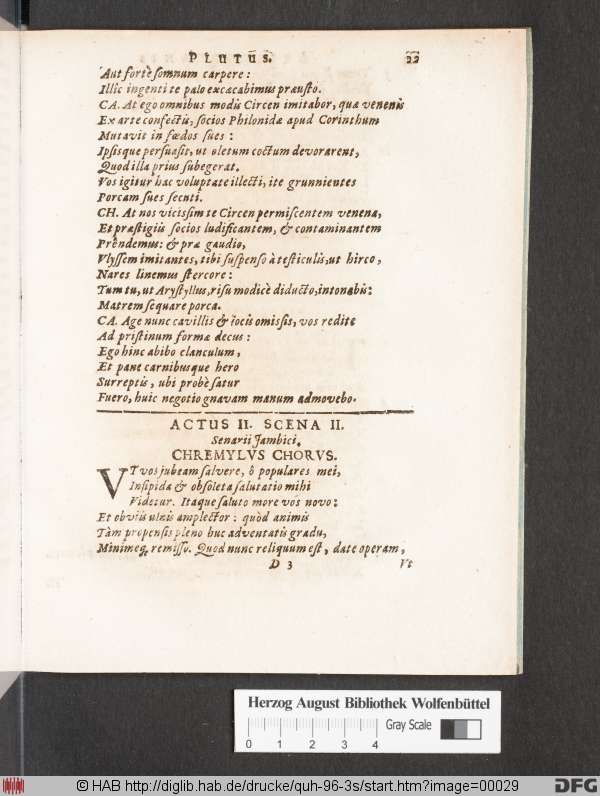 PLUTUS. 22
Aut fortè somnum carpere:
Illic ingenti te palo excæcabimus præusto.
CA. At ego omnibus modis Circen imitabor, quæ venenis
Ex arte confectis, socios Philonidæ apud Corinthum
Mutavit in fœdos sues:
Ipsisque persuasit, ut oletum coctum devorarent,
Quod illa prius subegerat.
Vos igitur hac voluptate illecti, ite grunnientes
Porcam sues secuti.
CH. At nos vicissim te Circen permiscentem venena,
Et præstigiis socios ludificantem, & contaminantem
Prêndemus: & præ gaudio,
Vlyssem imitantes, tibi suspenso à testiculis, ut hirco,
Nares linemus stercore:
Tum tu, ut Arystyllus, risu modicè diducto, intonabis:
Matrem sequare porca.
CA. Age nunc cavillis & iocis omissis, vos redite
Ad pristinum formæ decus:
Ego hinc abibo clanculum,
Et pane carnibusque hero
Surreptis, ubi probè satur
Fuero, huic negotio gnavam manum admovebo.
ACTUS II. SCENA II.
Senarii Jambici.
CHREMYLVS CHORVS.
VT vos jubeam salvere, ô populares mei,
Insipida & obsoleta salutatio mihi
Videtur. Itaque saluto more vos novo:
Et obviis ulnis amplector: quòd animis
Tàm propensis pleno huc adventatis gradu,
Minimeq; remisso. Quod nunc reliquum est, date operam,
D 3 Vt
Herzog August Bibliothek Wolfenbüttel
0 1 2 3 4 Gray Scale
© HAB http://diglib.hab.de/drucke/quh-96-3s/start.htm?image=00029
DFG